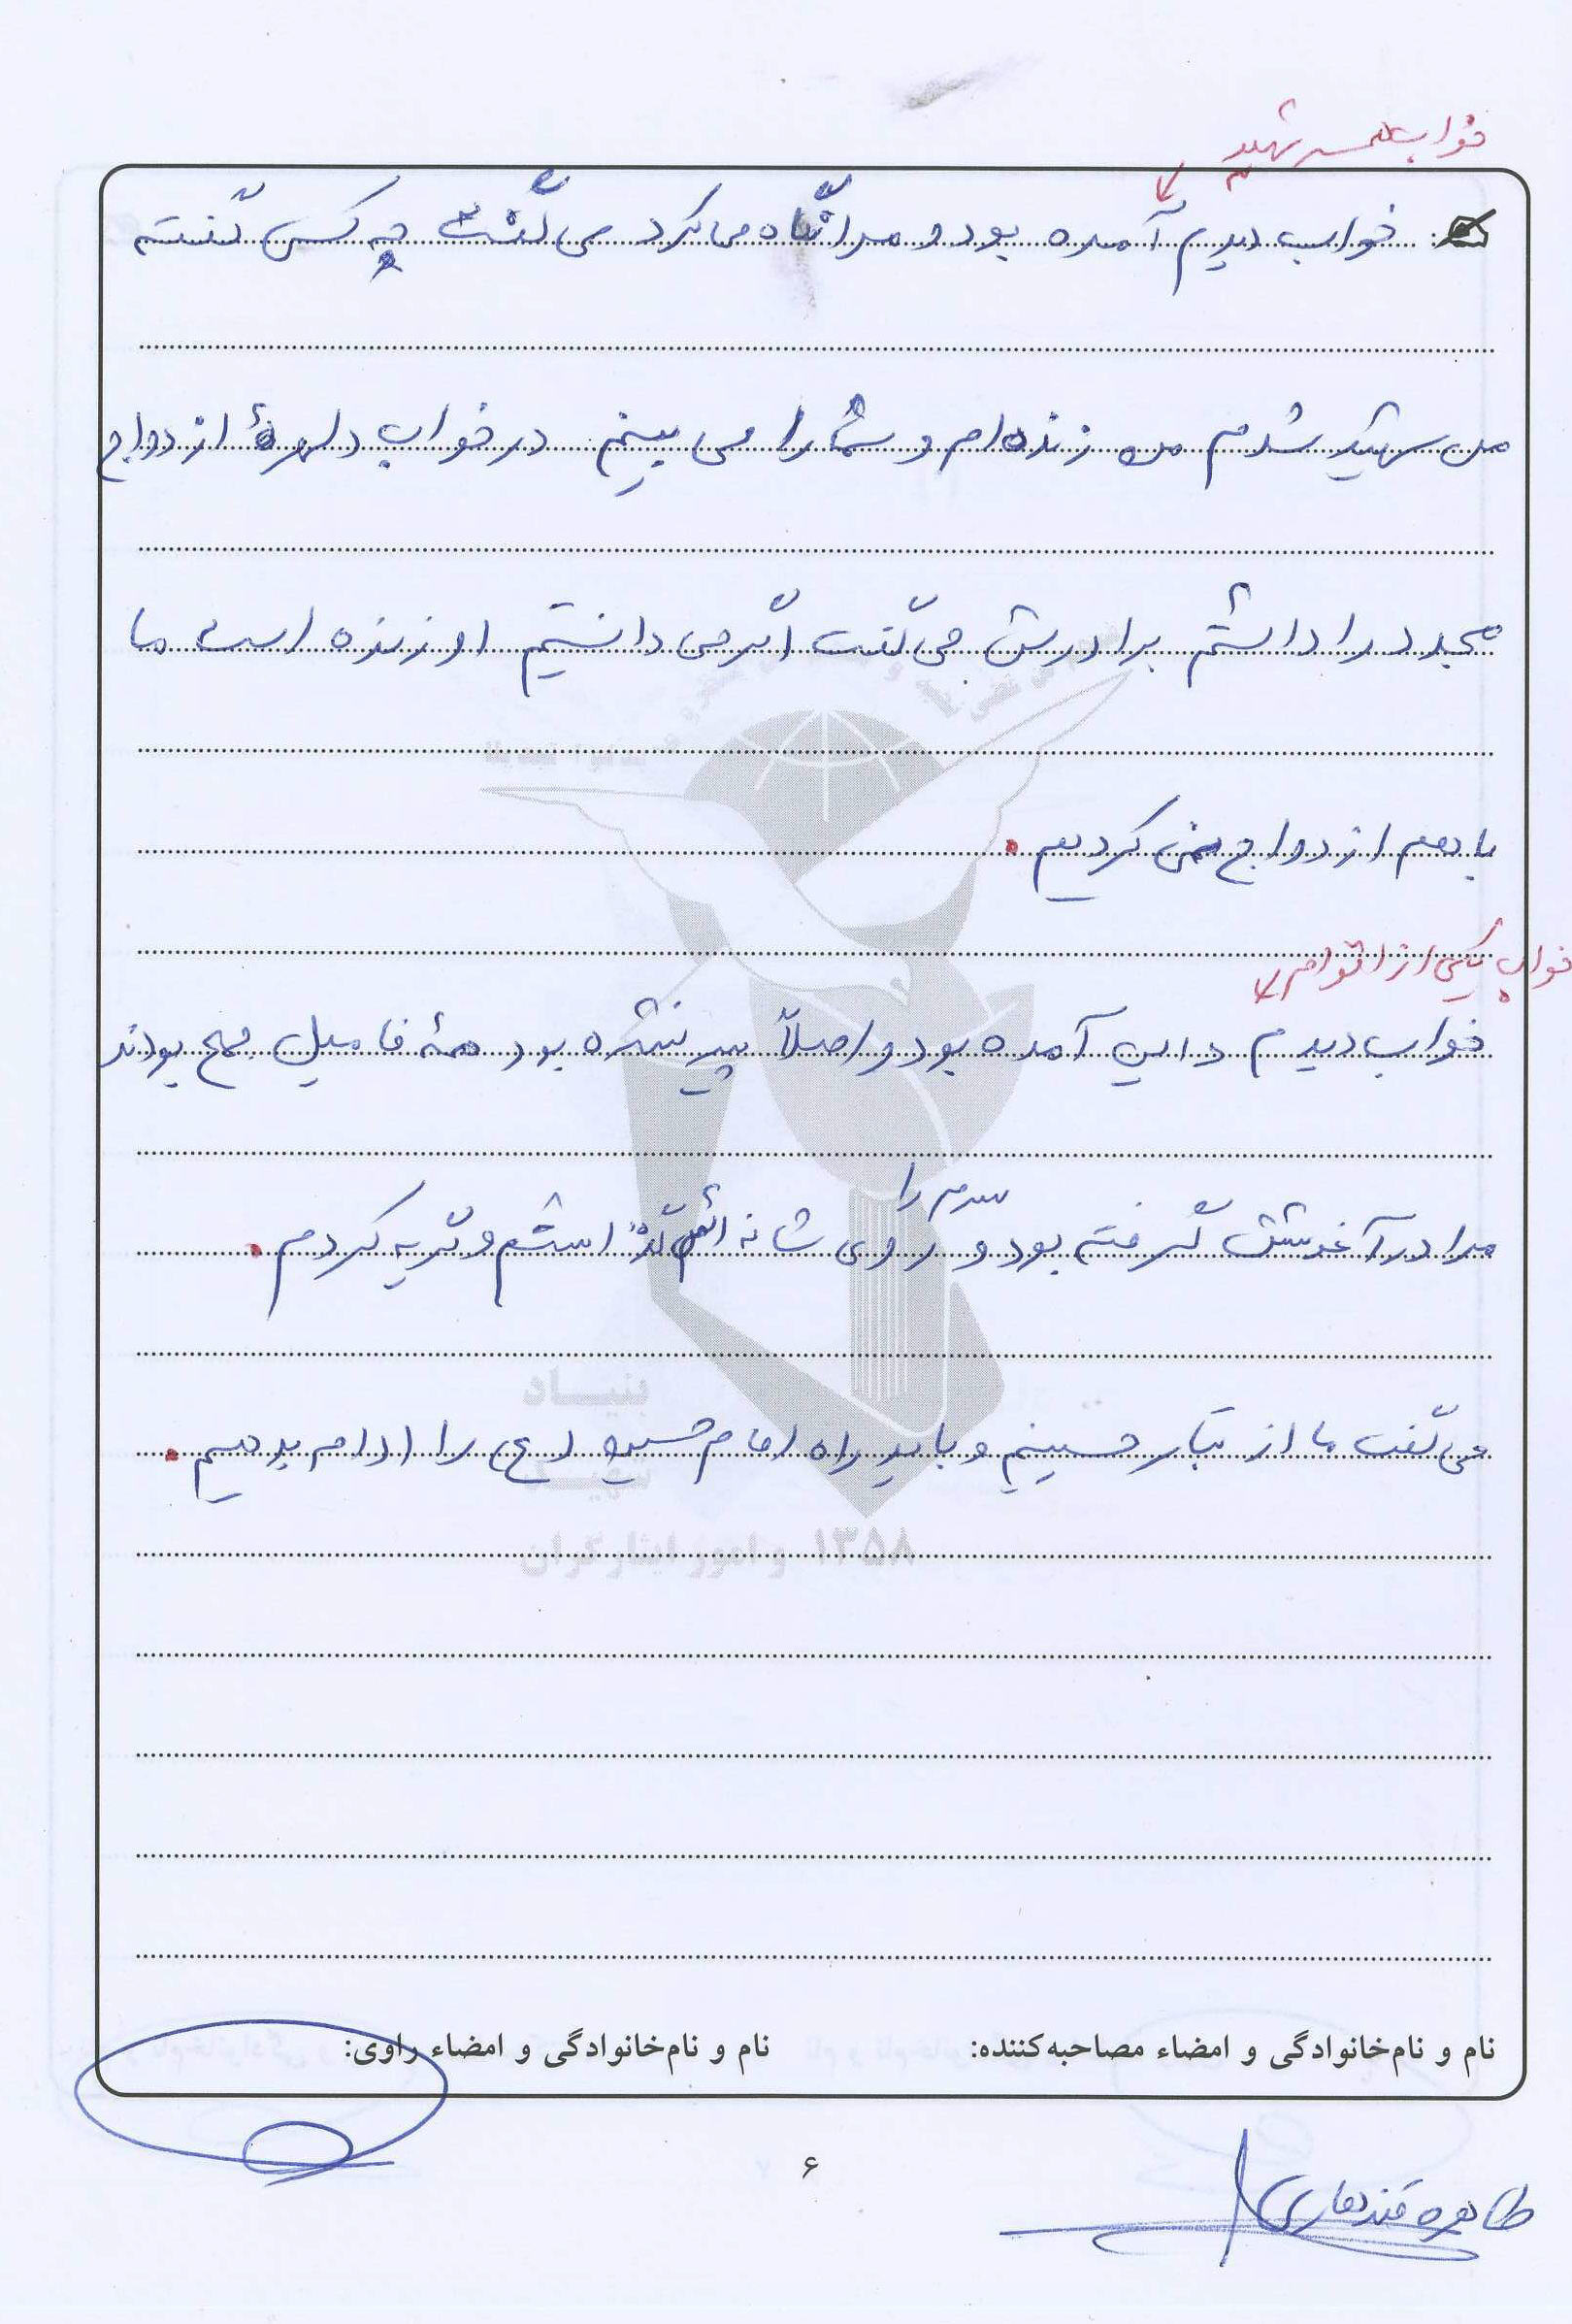 خواب همسر شهید
خواب دیدم آمده بود و مرا نگاه می کرد می گفت چه کسی گفته
من شهید شدم من زنده ام و شما را می بینم در خواب دلهرهٔ ازدواج
مجدد را داشتم برادرش می گفت اگر می دانستیم او زنده است ما
با هم ازدواج نمی کردیم.
خواب یکی از اقوام
خواب دیدم دایی آمده بود و اصلاً پیر نشده بود همهٔ فامیل جمع بودند
مرا در آغوشش گرفته بود و سرم را روی شانه اش گذاشتم و گریه کردم.
می گفت ما از تبار حسینیم و باید راه امام حسین (ع) را ادامه بدهیم.
بنیاد
شهید
۱۳۵۸ و امور ایثارگران
نام و نام‌خانوادگی و امضاء مصاحبه‌کننده: نام و نام‌خانوادگی و امضاء راوی:
۶
طاهره قندهاری